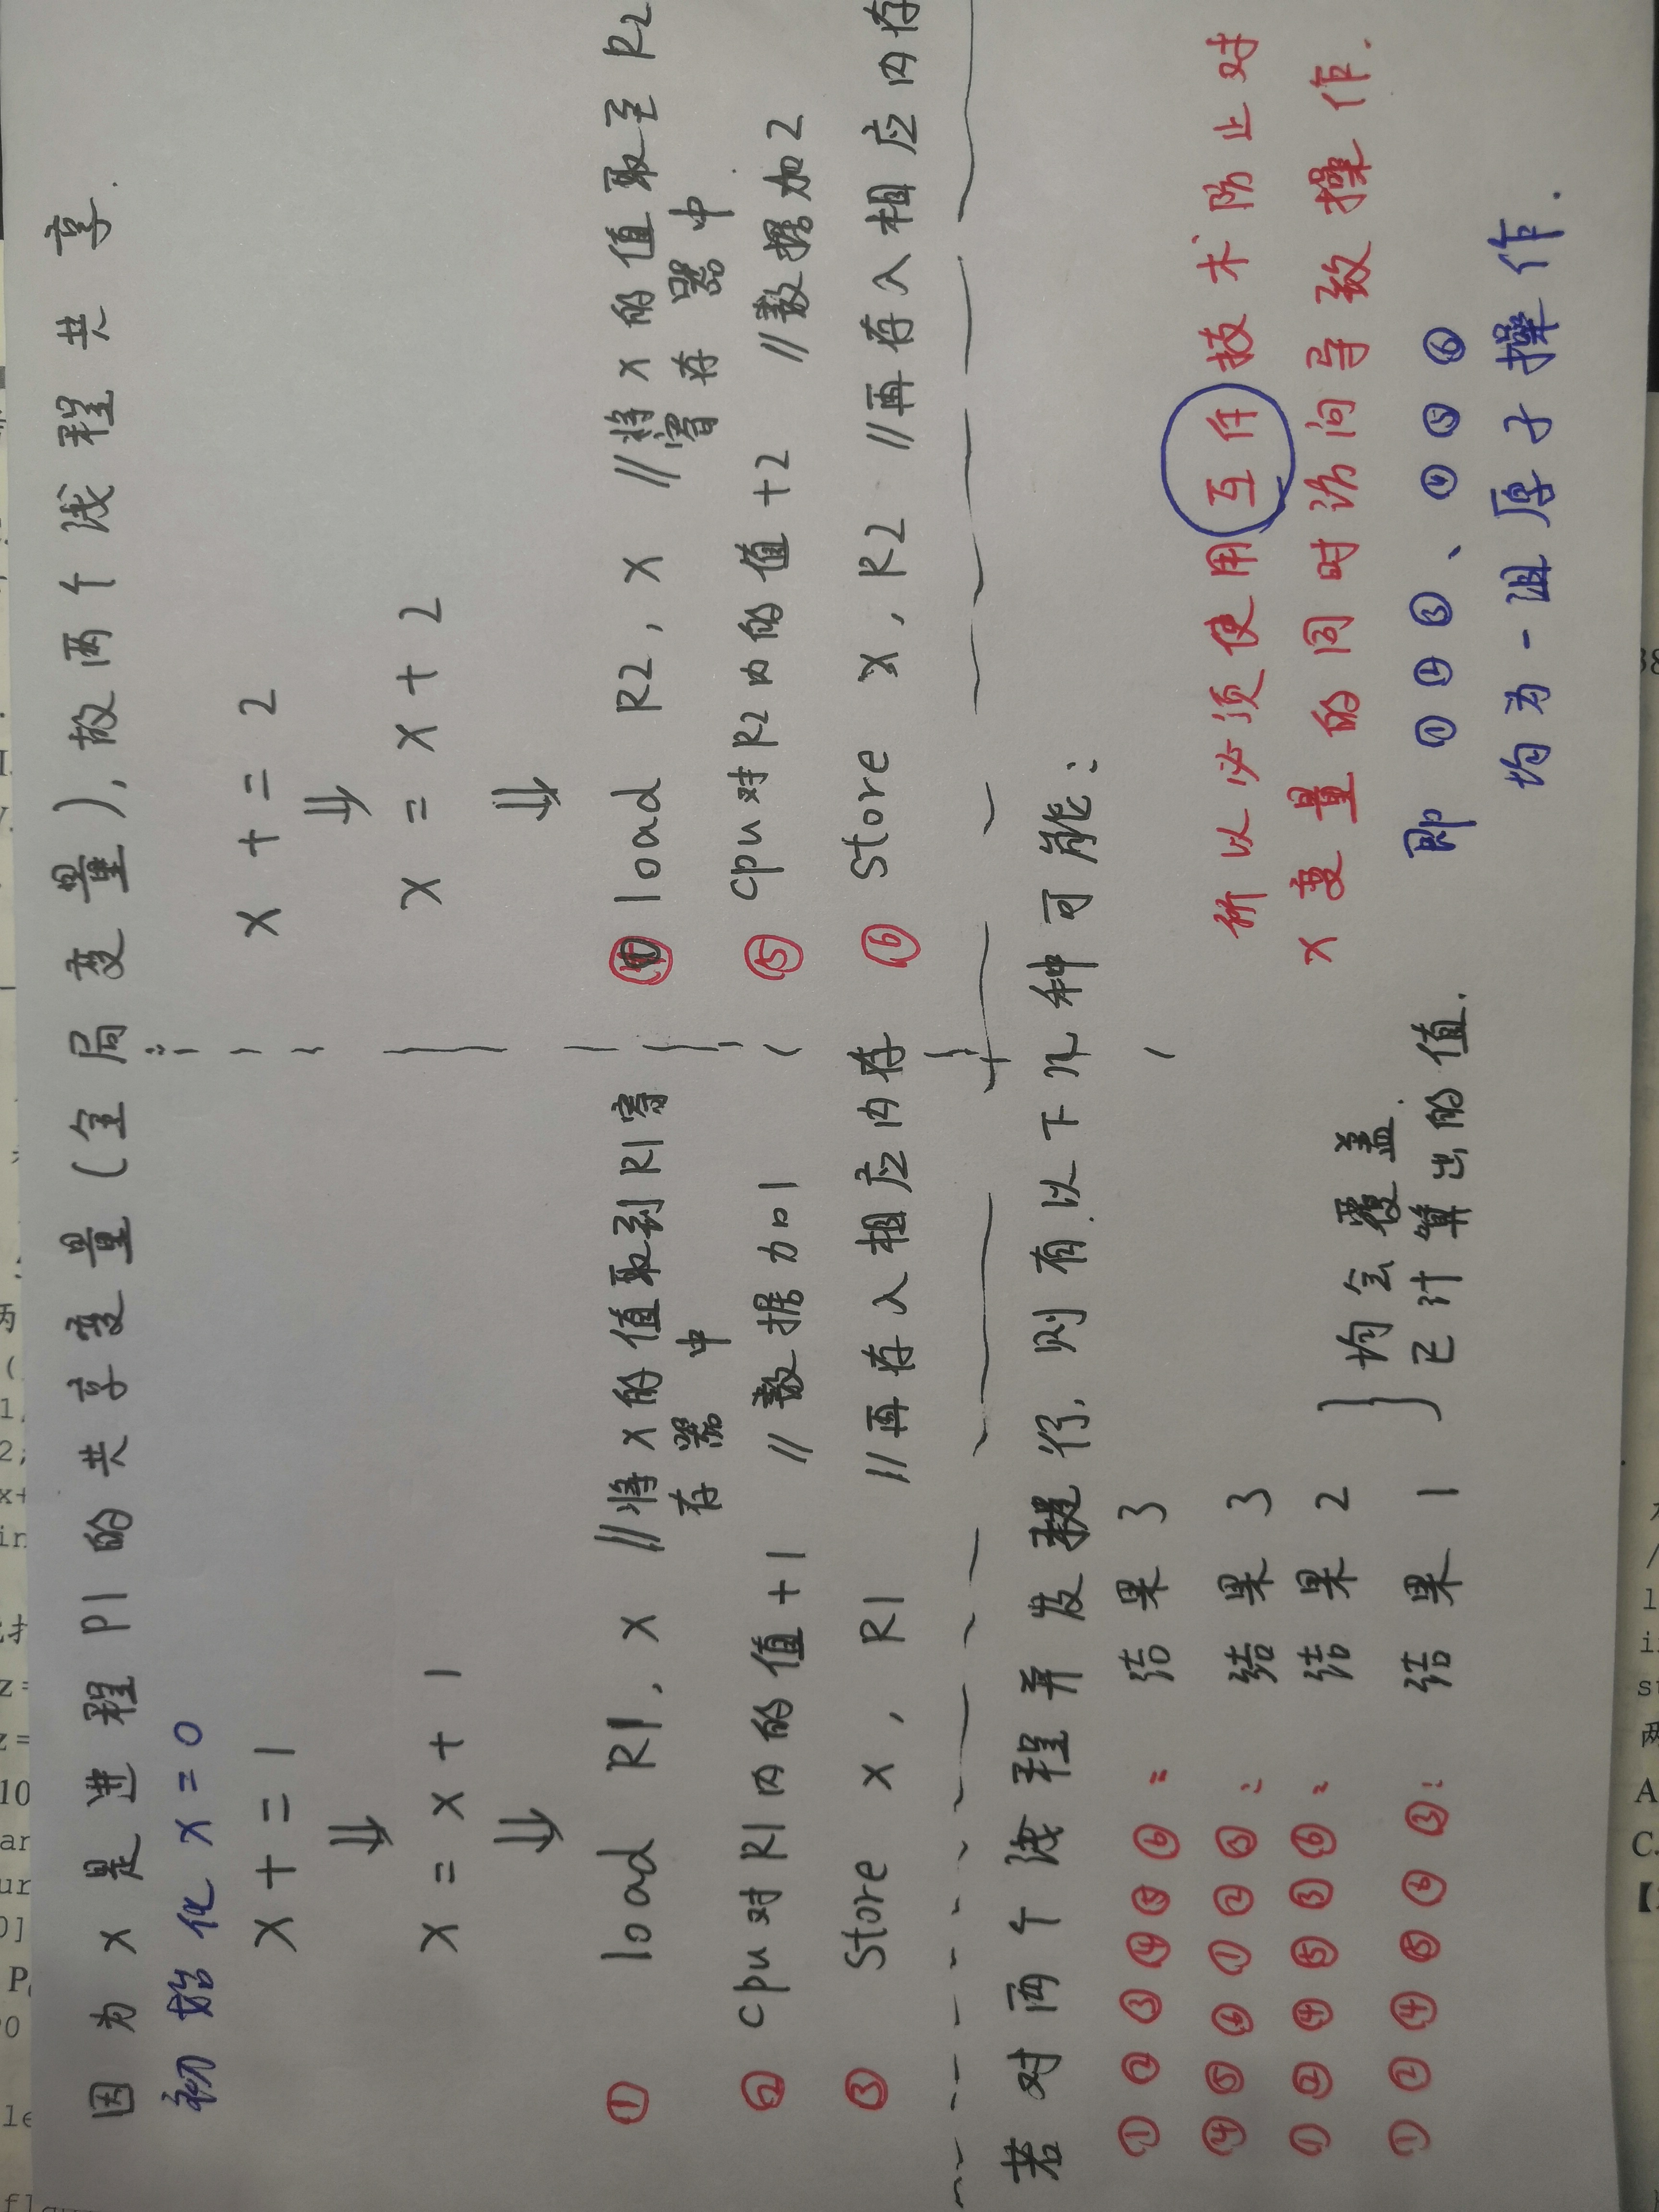 因为x是进程P1的共享变量(全局变量),故两个线程共享.
初始化 x=0
x+=1
⇓
x=x+1
⇓
① load R1, x //将x的值取到R1寄
存器中
② cpu对R1内的值+1 //数据加1
③ store x, R1 //再存入相应内存
x+=2
⇓
x=x+2
⇓
④ load R2, x //将x的值取至R2
寄存器中.
⑤ cpu对R2内的值+2 //数据加2
⑥ store x, R2 //再存入相应内存
若对两个线程并发执行,则有以下几种可能:
①②③④⑤⑥: 结果3
④⑤⑥①②③: 结果3
①②④⑤③⑥: 结果2
①②④⑤⑥③: 结果1
均会覆盖
已计算出的值.
所以必须使用互斥技术防止对
x变量的同时访问导致操作.
即 ①②③、④⑤⑥
均为一组原子操作.